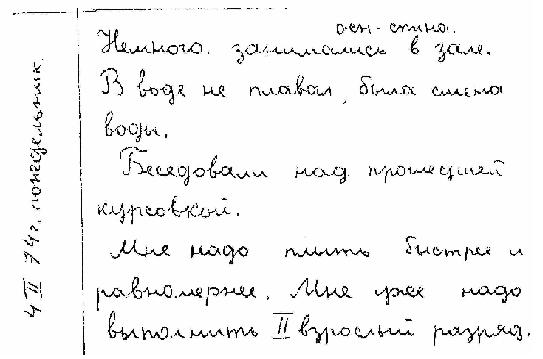 4 II 74г. понедельник.
осн - спина.
Немного занимались в зале.
В воде не плавал, была смена
воды.
Беседовали над прошедшей
курсовкой.
Мне надо плыть быстрее и
равномернее. Мне уже надо
выполнить II взрослый разряд.